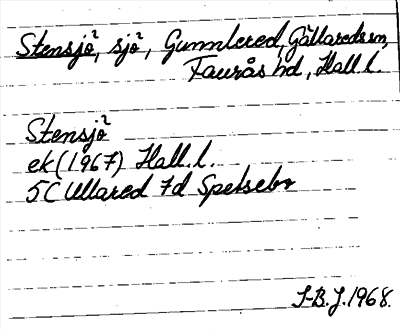 Stensjö², sjö², Gunnlered, Gällareds sn,
Faurås hd, Hall. l.
Stensjö²
ek (1967) Hall. l.
5C Ullared 7d Spetsebo
J-B.J. 1968.